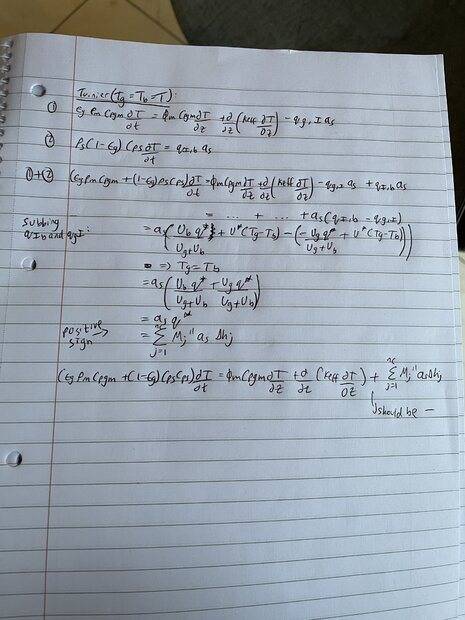 (Tg = Tb = T):
① εg ρm Cpgm ∂T/∂t = ϕm Cpgm ∂T/∂z + ∂/∂z (Keff ∂T/∂z) - qg,I as
② ρs(1-εg) Cps ∂T/∂t = qI,b as
①+② (εg ρm Cpgm + (1-εg) ρs Cps) ∂T/∂t = ϕm Cpgm ∂T/∂z + ∂/∂z (Keff ∂T/∂z) - qg,I as + qI,b as
= ... + ... + as(qI,b - qg,I)
Subbing qIb and qgI:
= as (Ub q*/Ug+Ub + U*(Tg-Tb) - (-Ug q*/Ug+Ub + U*(Tg-Tb)))
=> Tg=Tb
= as (Ub q*/Ug+Ub + Ug q*/Ug+Ub)
= as q*
positive sign → = Σ j=1 Mj'' as Δhj
(εg ρm Cpgm + (1-εg) ρs Cps) ∂T/∂t = ϕm Cpgm ∂T/∂z + ∂/∂z (Keff ∂T/∂z) + Σ j=1 Mj'' as Δhj
should be -